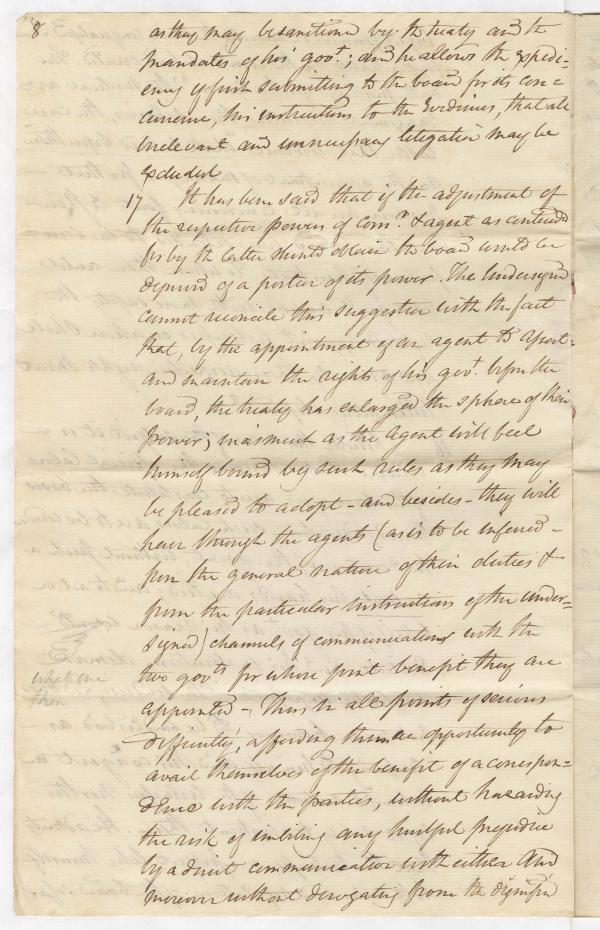 8
as they may be sanctioned by the treaty and the
mandates of his govt.; and he allows the expedi=
ency of first submitting to the board for its con=
currence, his instructions to the Evidences, that all
irrelevant and unnecessary litigation may be
excluded
17 It has been said that if the adjustment of
the respective powers of Comrs. & agent as contended
for by the latter should obtain the board would be
deprived of a portion of its power. The Undersigned
cannot reconcile this suggestion with the fact
that, by the appointment of an agent to assert
and maintain the rights of his govt. before the
board, the treaty has enlarged the sphere of their
power; inasmuch as the agent will feel
himself bound by such rules as they may
be pleased to adopt - and besides - they will
have through the agents (as is to be inferred -
from the general nature of their duties &
from the particular instructions of the under=
signed) channels of communication with the
two govts for whose joint benefit they are
what are
then
appointed - Thus in all points of serious
difficulty, affording them an opportunity to
avail themselves of the benefit of a correspon=
dence with the parties, without hazarding
the risk of imbibing any hurtful prejudice
by a direct communication with either and
moreover without derogating from the dignified